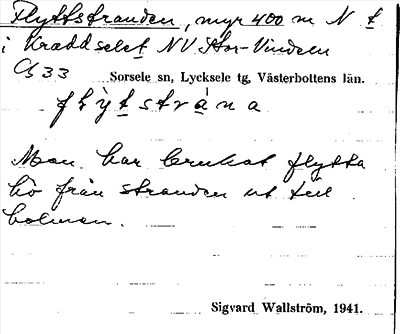 Flyttstranden, myr 400 m N t
i Kraddselet NV Stor-Vindeln
C 33 Sorsele sn, Lycksele tg, Västerbottens län.
flỳtstrána
Man har brukat flytta
hö från stranden ut till
holmen.
Sigvard Wallström, 1941.